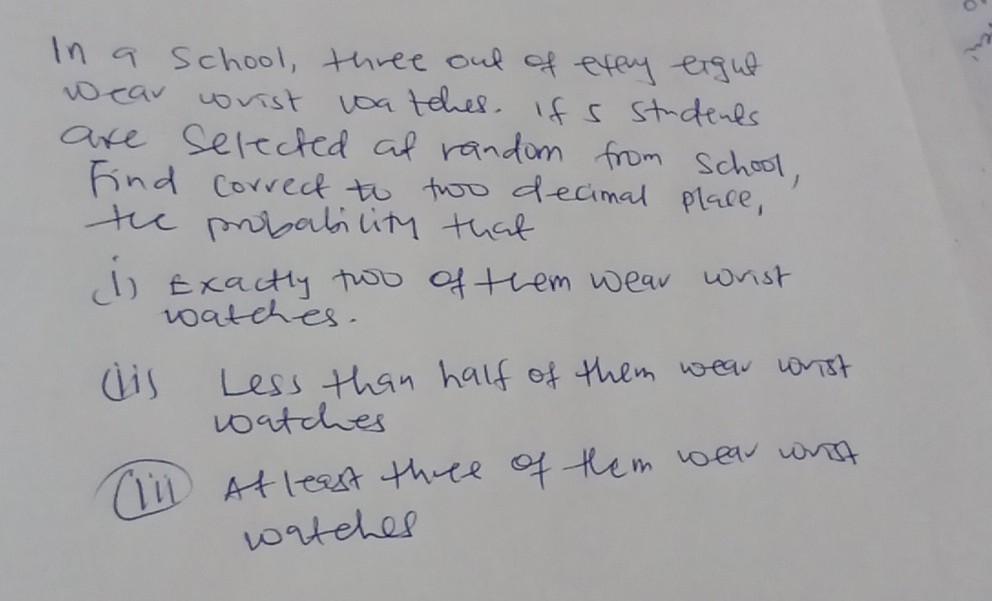 In a School, three out of every eight
wear wrist watches. If 5 students
are Selected at random from School,
Find correct to two decimal place,
the probability that
(i) Exactly two of them wear wrist
watches.
(ii) Less than half of them wear wrist
watches
(iii) At least three of them wear wrist
watches